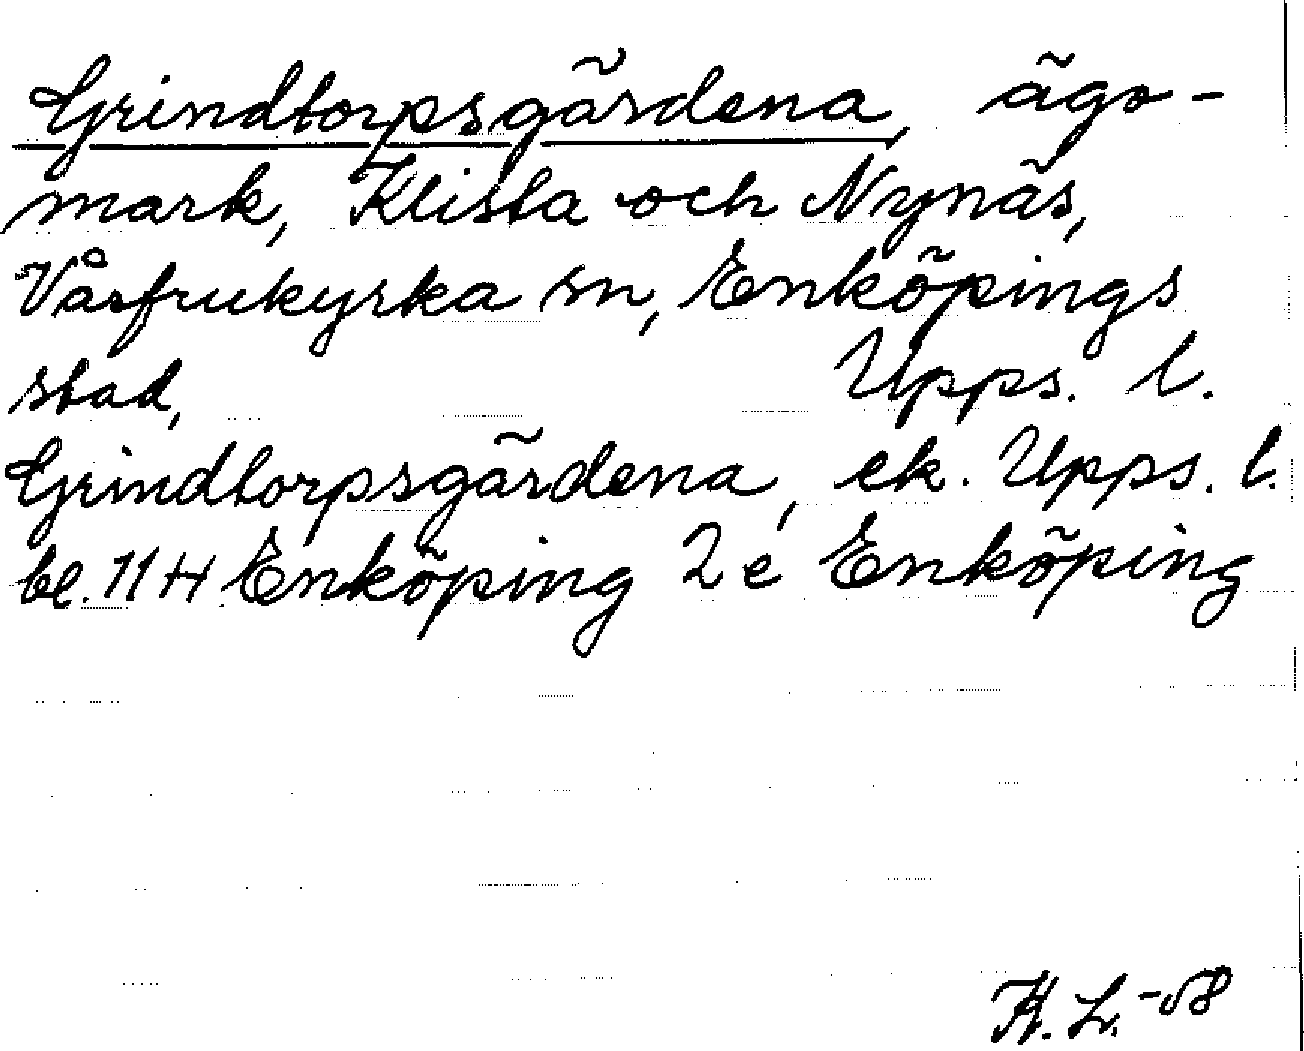 Grindtorpsgärdena, ägo-
mark, Klista och Nynäs,
Vårfrukyrka sn, Enköpings
stad, Upps. l.
Grindtorpsgärdena, ek. Upps. l.
bl. 11 H Enköping 2 e Enköping
H. L. -58